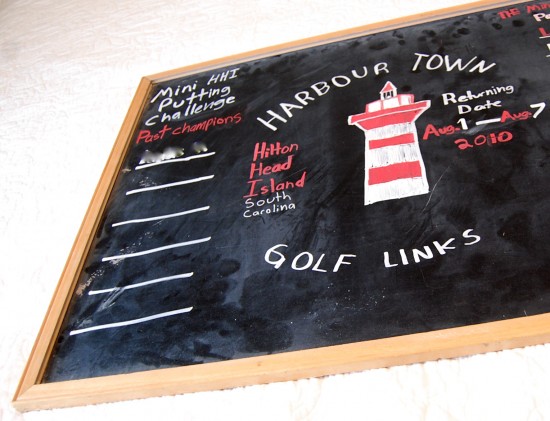 Mini HHI
Putting
Challenge
Past champions
HARBOUR TOWN
Hilton
Head
Island
South
Carolina
Returning
Date
Aug. 1 — Aug. 7
2010
GOLF LINKS
THE